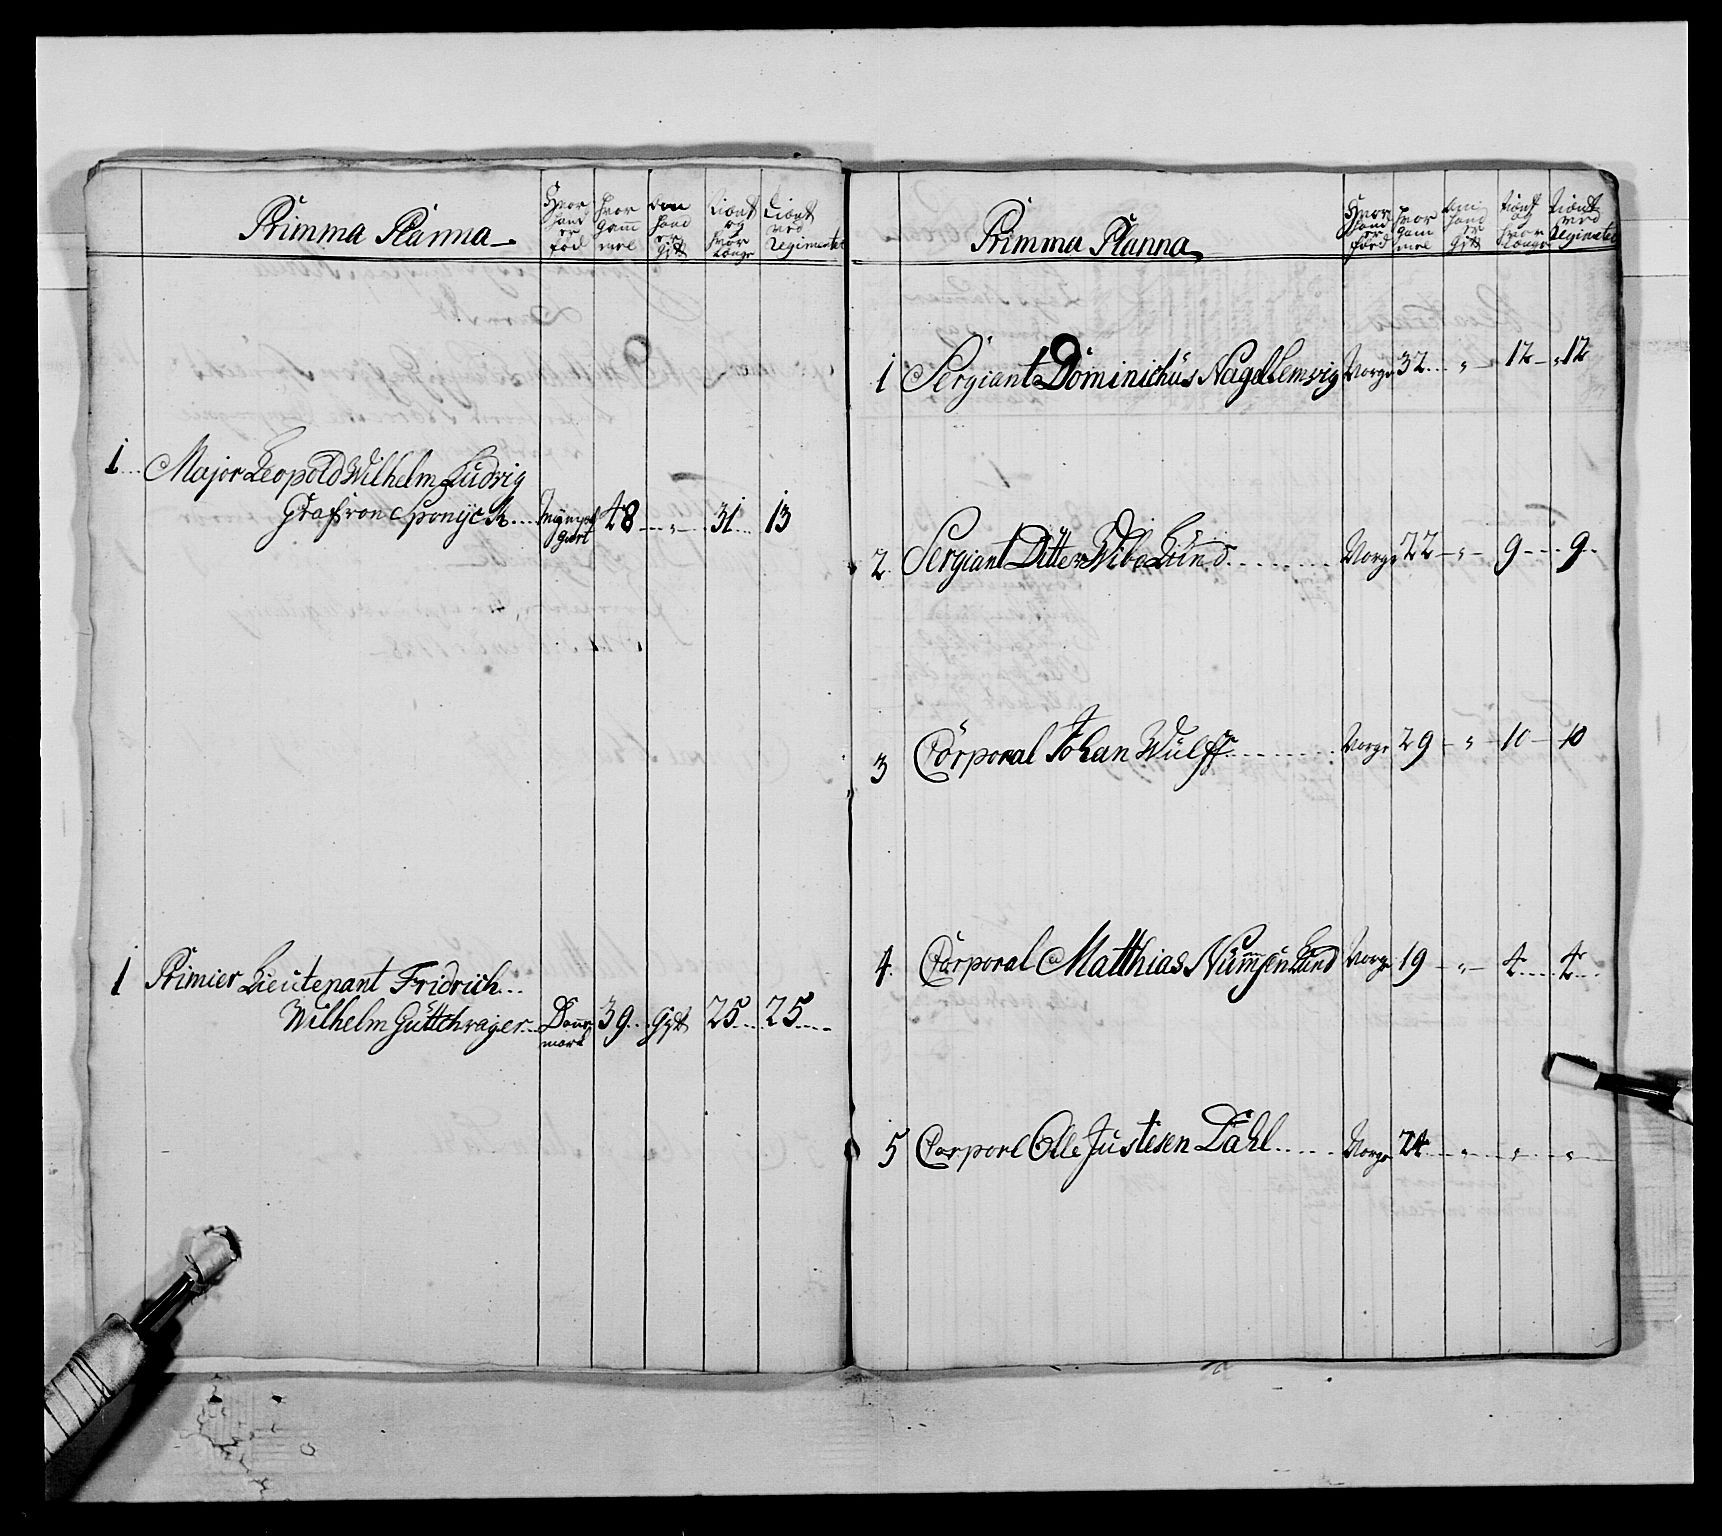 Primma Planna
Hvor hand er föd
hvor gamm mel
om hand er gift
tiönt og hvor Længe
tiönt ved Regimentet
1 Major Leopold Wilhelm Ludvig
Graf von Sponyck 48 " 31 13
1 Primier Lieutenant Fridrich
Wilhelm Güttchrager Danne mark 39 gift 25 25
Primma Planna
Hvor hand erföed
hvor gam mel
om hand er gift
tiönt og hvor Længe
tiönt ved Regimentet
1 Sergiant Dominichüs Nagel Lemvig Norge 32 " 12 12
2 Sergiant Ditlev Wibe Lünd Norge 22 " 9 9
3 Corporal Johan Wülff Norge 29 " 10 10
4 Corporal Matthias Nümmen Lund Norge 19 " 4 4
5 Corporl Olle Justesen Dahl Norge 24 " " "